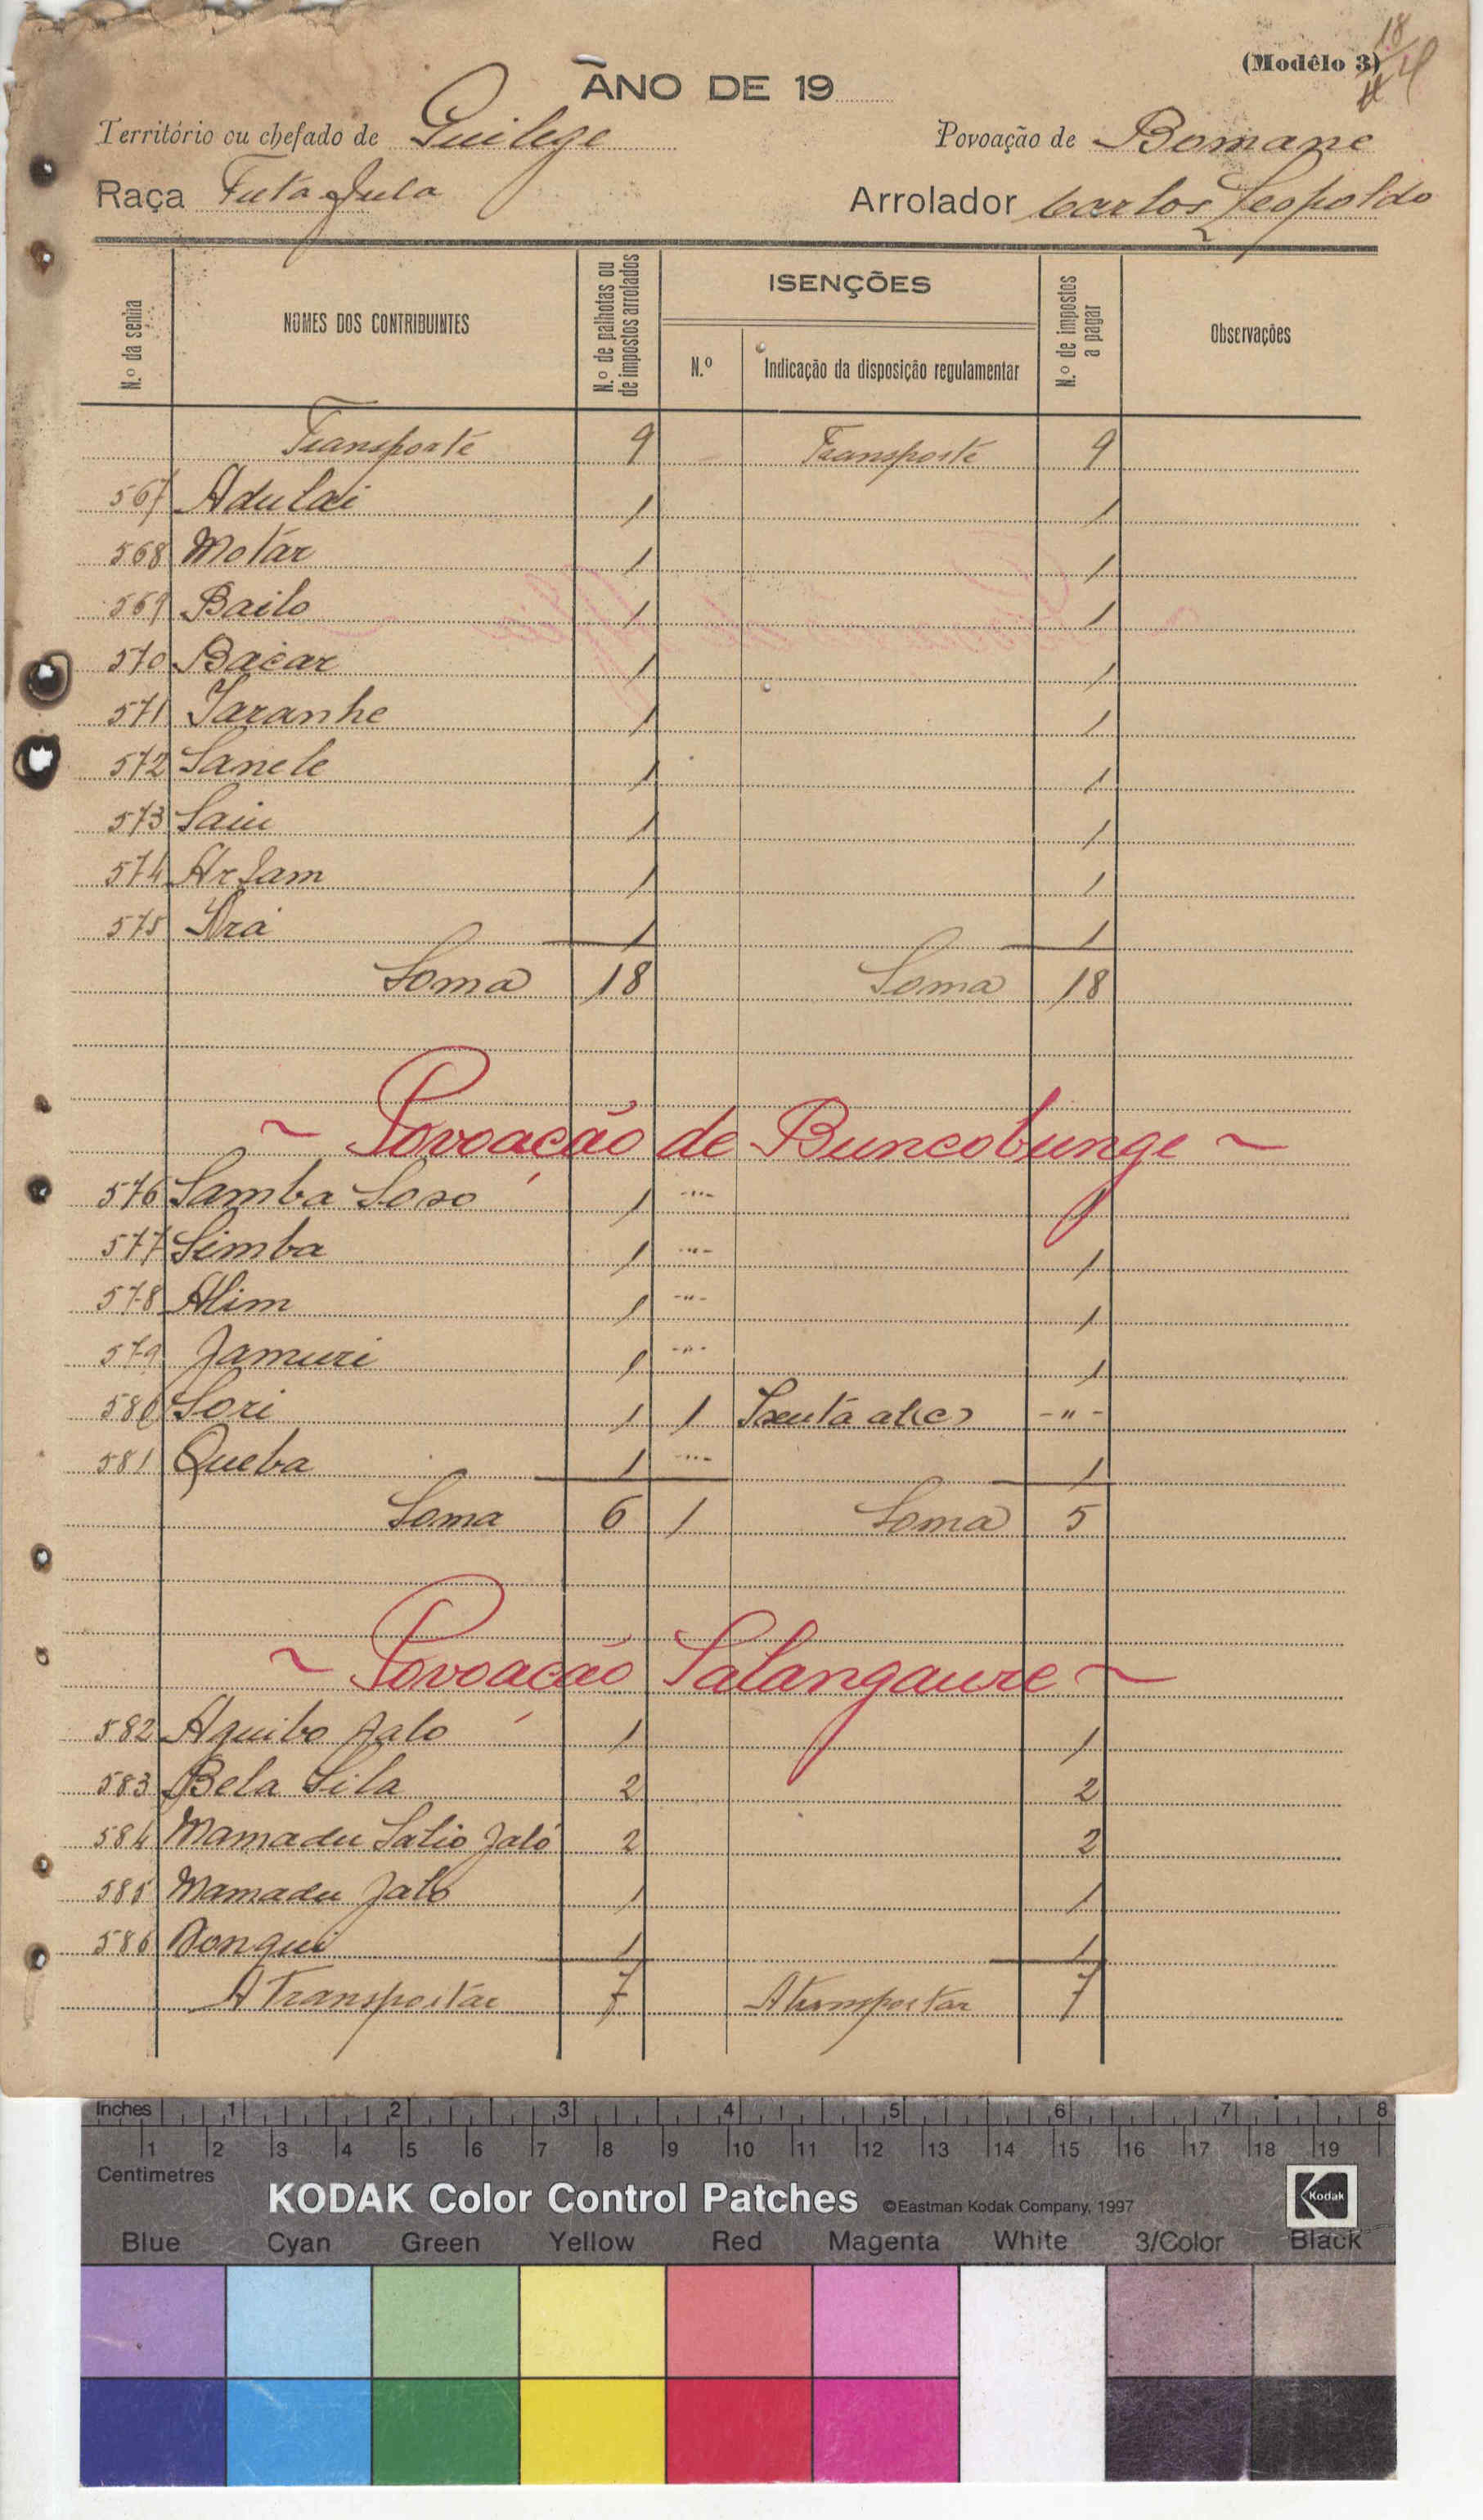 (Modêlo 3)
18
ANO DE 19
Território ou chefado de Guilege Povoação de Bomane
Raça Futa Jula Arrolador Carlos Leopoldo
N.º da senha NOMES DOS CONTRIBUINTES N.º de palhotas ou de impostos arrolados ISENÇÕES N.º de impostos a pagar Observações
N.º Indicação da disposição regulamentar
Transporte 9 Transporte 9
567 Adulai 1 1
568 Motar 1 1
569 Bailo 1 1
570 Bacar 1 1
571 Jaranhe 1 1
572 Sanele 1 1
573 Saiu 1 1
574 Arfam 1 1
575 Ará 1 1
Soma 18 Soma 18
~ Povoação de Buncobunge ~
576 Samba Soso 1 -"- 1
577 Simba 1 -"- 1
578 Alim 1 -"- 1
579 Jamuri 1 -"- 1
580 Sori 1 1 -"-
581 Queba 1 -"- 1
Soma 6 1 Soma 5
~ Povoação Salangaure ~
582 Aquibo Jalo 1 1
583 Bela Sila 2 2
584 Mamadu Salio Jaló 2 2
585 Mamadu Jaló 1 1
586 Donqui 1 1
A Transportar 7 A transportar 7
Inches 1 2 3 4 5 6 7 8
1 2 3 4 5 6 7 8 9 10 11 12 13 14 15 16 17 18 19
Centimetres
KODAK Color Control Patches ©Eastman Kodak Company, 1997 Kodak
Blue Cyan Green Yellow Red Magenta White 3/Color Black